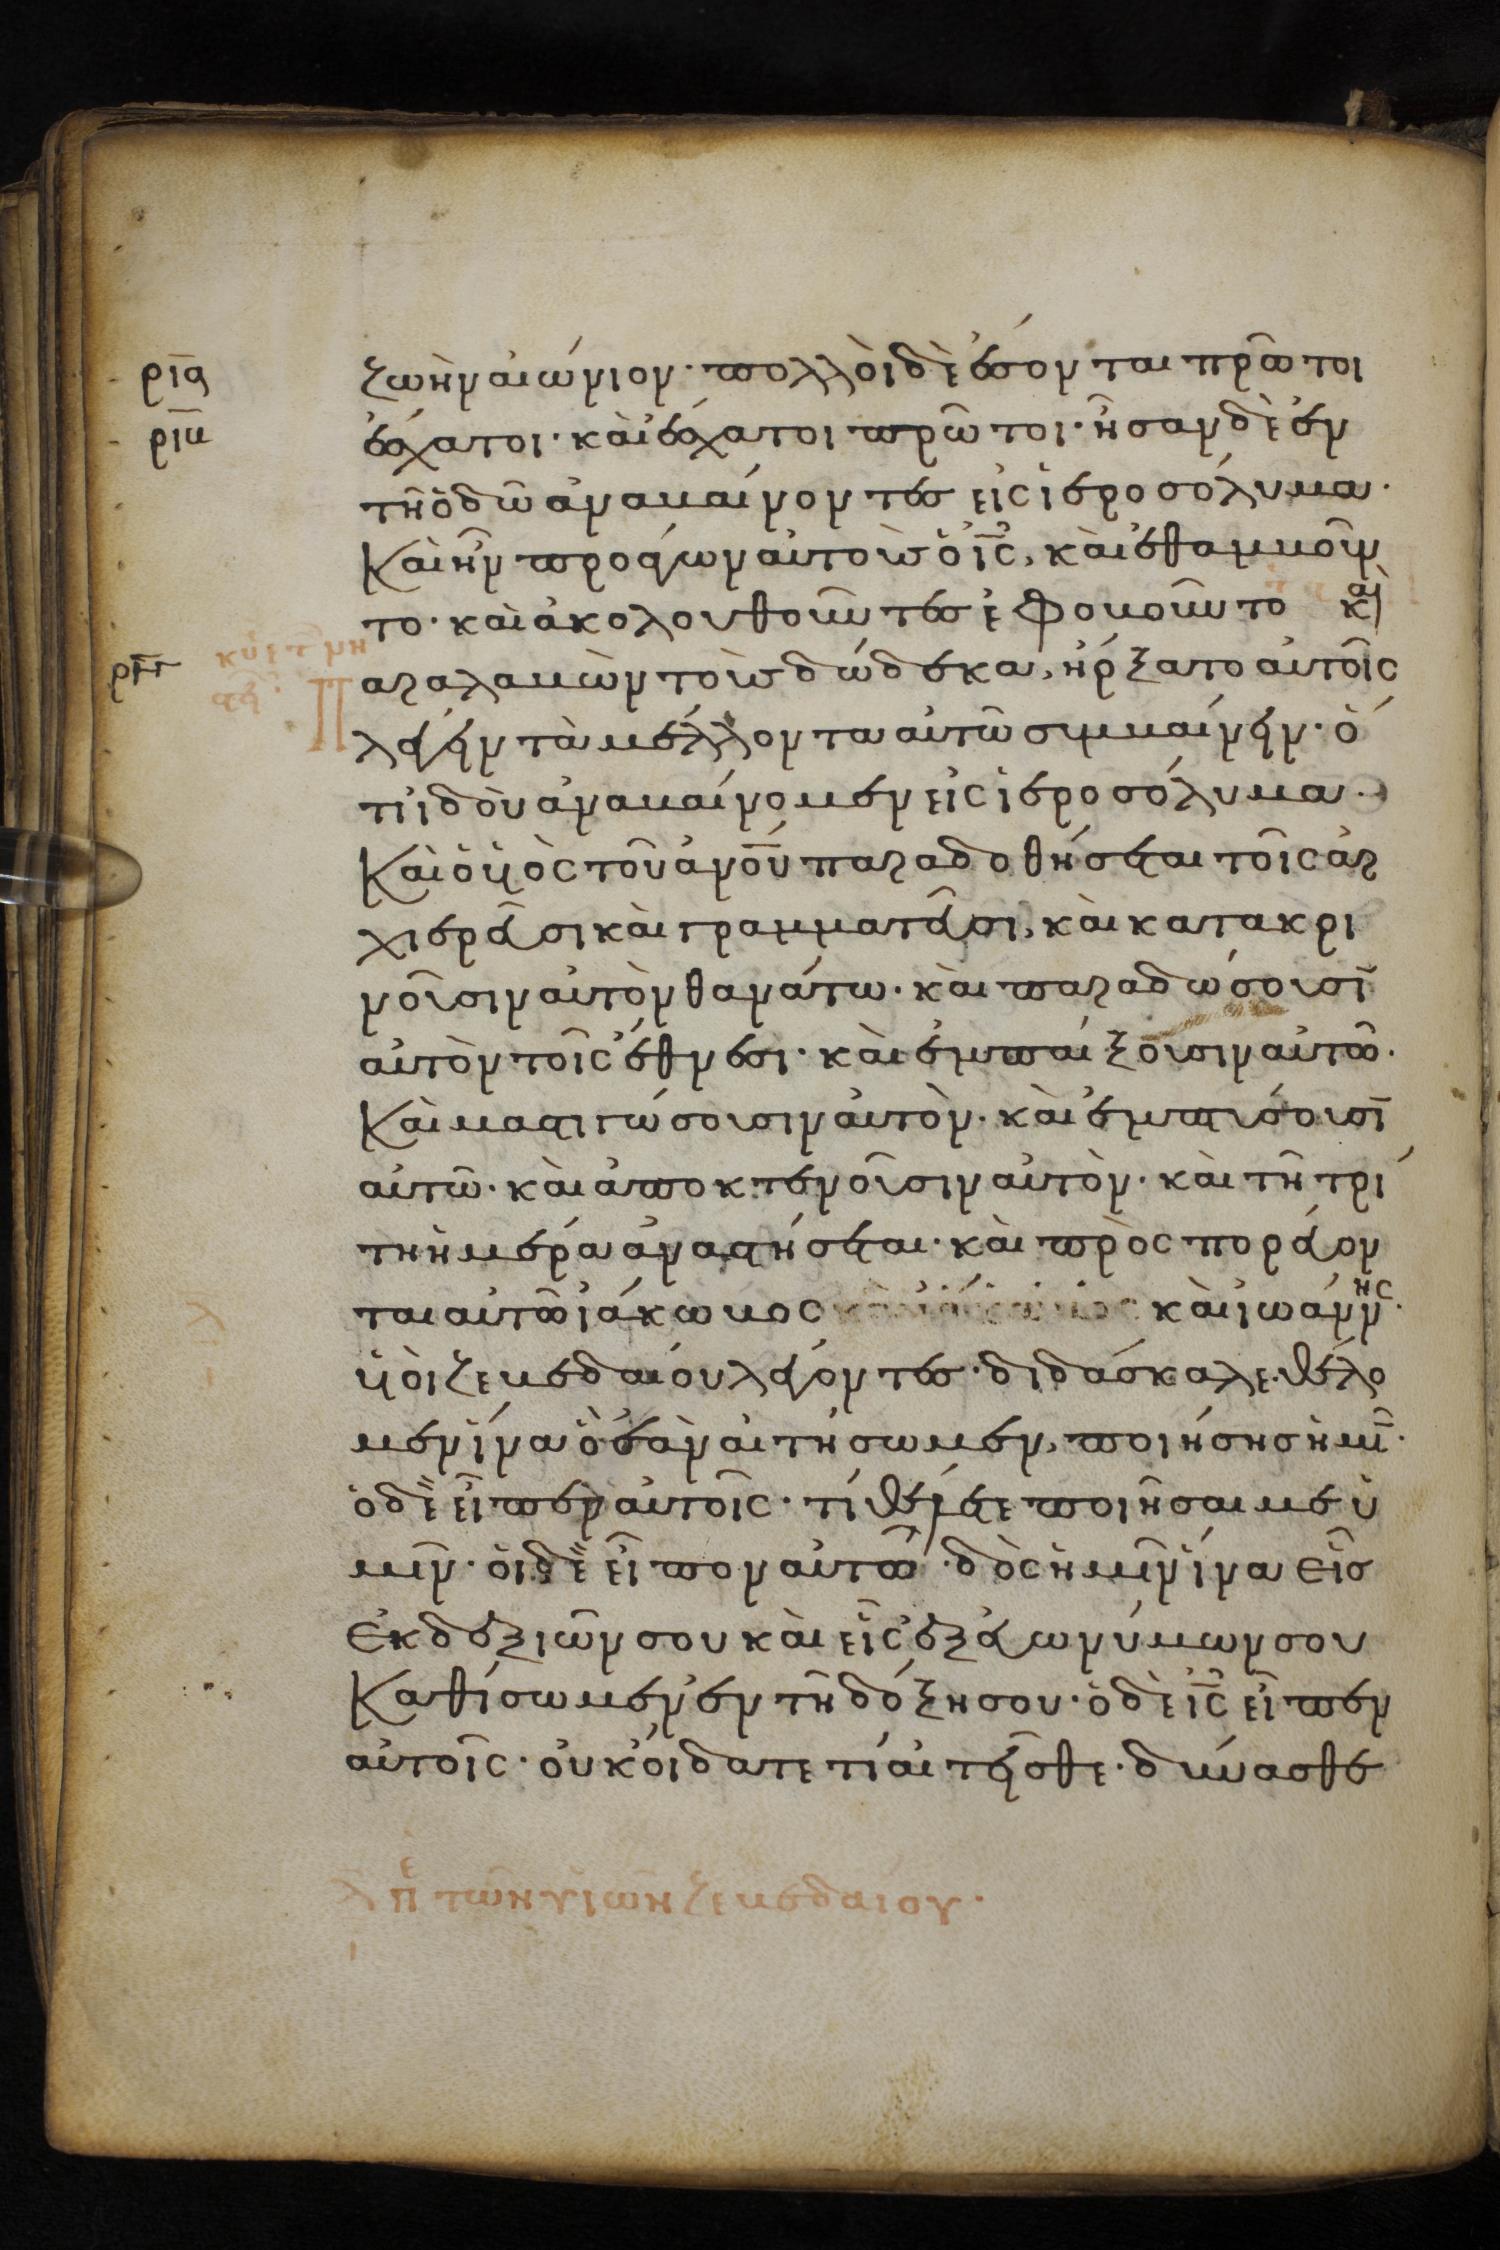 ριϛ ζωὴν αἰώνιον· πολλοὶ δὲ ἔσονται πρῶτοι
ριζ ἔσχατοι· καὶ ἔσχατοι πρῶτοι· ἦσαν δὲ ἐν
τῆ ὁδῶ ἀναβαίνοντες εἰς ἱεροσόλυμα·
Καὶ ἦν προάγων αὐτοὺς ὁ ις, καὶ ἐθαμβοῦν
το· καὶ ἀκολουθοῦντες ἐφοβοῦντο καὶ
Παραλαβὼν τοὺς δώδεκα, ἤρξατο αὐτοῖς
λέγειν τὰ μέλλοντα αὐτῶ συμβαίνειν· ὅ
τι ἰδοὺ ἀναβαίνομεν εἰς ἱεροσόλυμα·
Καὶ ὁ υἱὸς τοῦ ανου παραδοθήσεται τοῖς ἀρ
χιερεῦσι καὶ γραμματεῦσι, καὶ κατακρι
νοῦσιν αὐτὸν θανάτω· καὶ παραδώσουσι
αὐτὸν τοῖς ἔθνεσι· καὶ ἐμπαίξουσιν αὐτῶ·
Καὶ μαστιγώσουσιν αὐτὸν· καὶ ἐμπτύσουσι
αὐτῶ· καὶ ἀποκτενοῦσιν αὐτὸν· καὶ τῆ τρί
τη ἡμέρα ἀναστήσεται· καὶ προσπορεύον
ται αὐτῶ ἰάκωβος καὶ ἰωάννης·
υἱοὶ ζεβεδαίου λέγοντες· διδάσκαλε· θέλο
μεν ἵνα ὃ ἐὰν αἰτήσωμεν, ποιήσης ἡμῖν·
ὁ δὲ εἶπεν αὐτοῖς· τί θέλετε ποιῆσαι με ὑ
μῖν· οἱ δὲ εἶπον αὐτῶ· δὸς ἡμῖν ἵνα εἷς
ἐκ δεξιῶν σου καὶ εἷς ἐξ εὐωνύμων σου
Καθίσωμεν ἐν τῆ δόξη σου· ὁ δὲ ις εἶπεν
αὐτοῖς· οὐκ οἴδατε τί αἰτεῖσθε· δύνασθε
λ πε τῶν υἱῶν ζεβεδαίου·